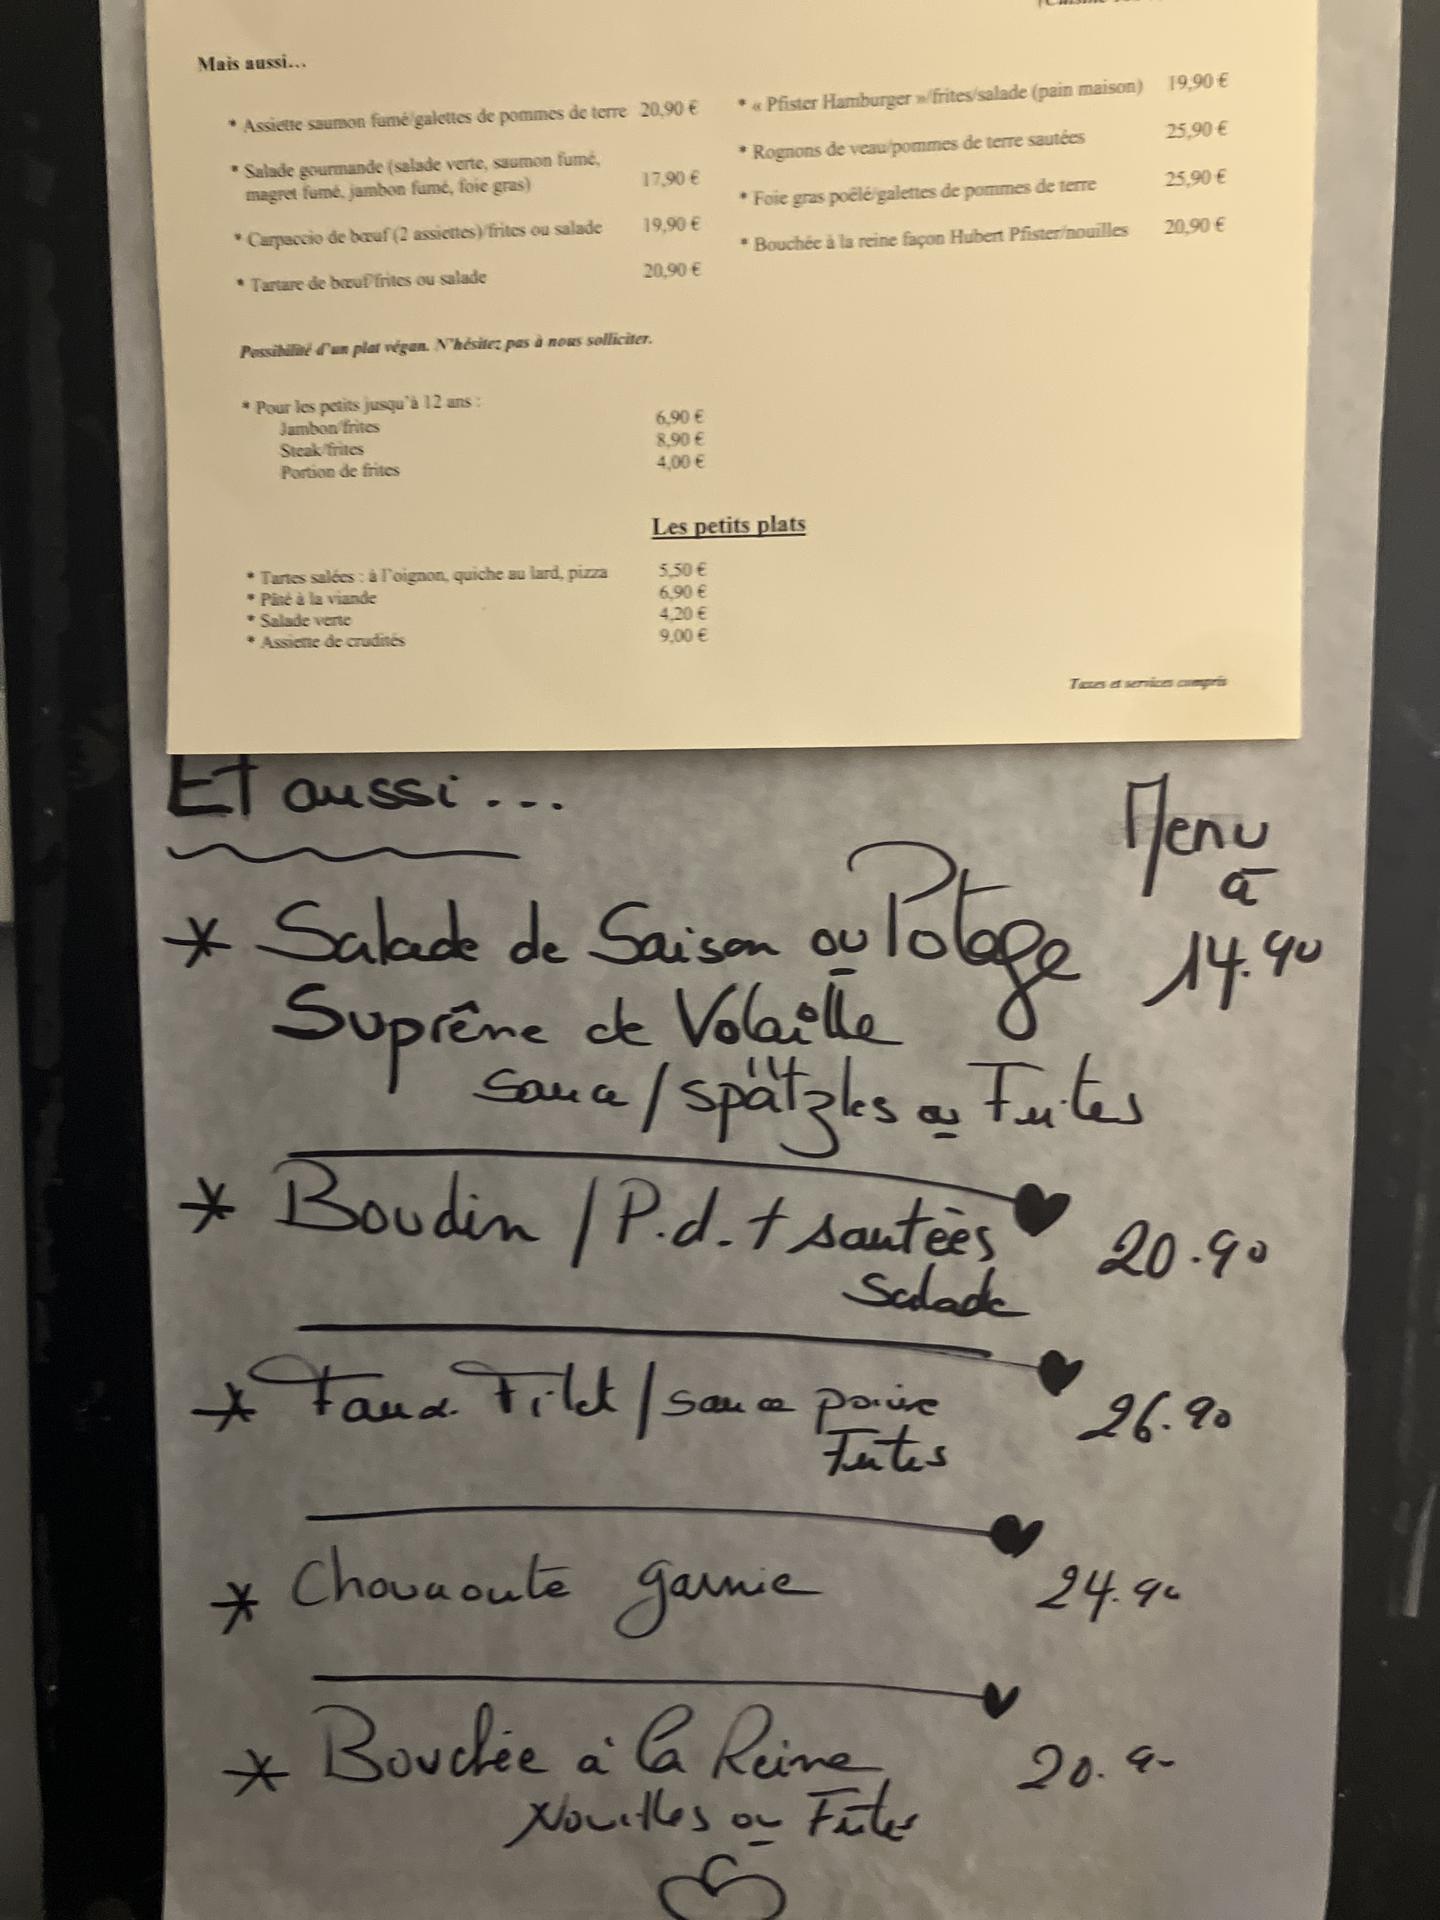 Mais aussi...
* Assiette saumon fumé/galettes de pommes de terre 20,90 €
* Salade gourmande (salade verte, saumon fumé,
magret fumé, jambon fumé, foie gras) 17,90 €
* Carpaccio de bœuf (2 assiettes)/frites ou salade 19,90 €
* Tartare de bœuf/frites ou salade 20,90 €
* « Pfister Hamburger »/frites/salade (pain maison) 19,90 €
* Rognons de veau/pommes de terre sautées 25,90 €
* Foie gras poêlé/galettes de pommes de terre 25,90 €
* Bouchée à la reine façon Hubert Pfister/nouilles 20,90 €
Possibilité d'un plat végan. N'hésitez pas à nous solliciter.
* Pour les petits jusqu'à 12 ans :
Jambon/frites 6,90 €
Steak/frites 8,90 €
Portion de frites 4,00 €
Les petits plats
* Tartes salées : à l'oignon, quiche au lard, pizza 5,50 €
* Pâté à la viande 6,90 €
* Salade verte 4,20 €
* Assiette de crudités 9,00 €
Taxes et services compris
Et aussi...
Menu
à
* Salade de Saison ou Potage 14.90
Suprême de Volaille
sauce / spätzles ou Frites
* Boudin / P.d.t sautées 20.90
Salade
* Faux Filet / sauce poivre 26.90
Frites
* Choucroute garnie 24.90
* Bouchée à la Reine 20.90
Nouilles ou Frites